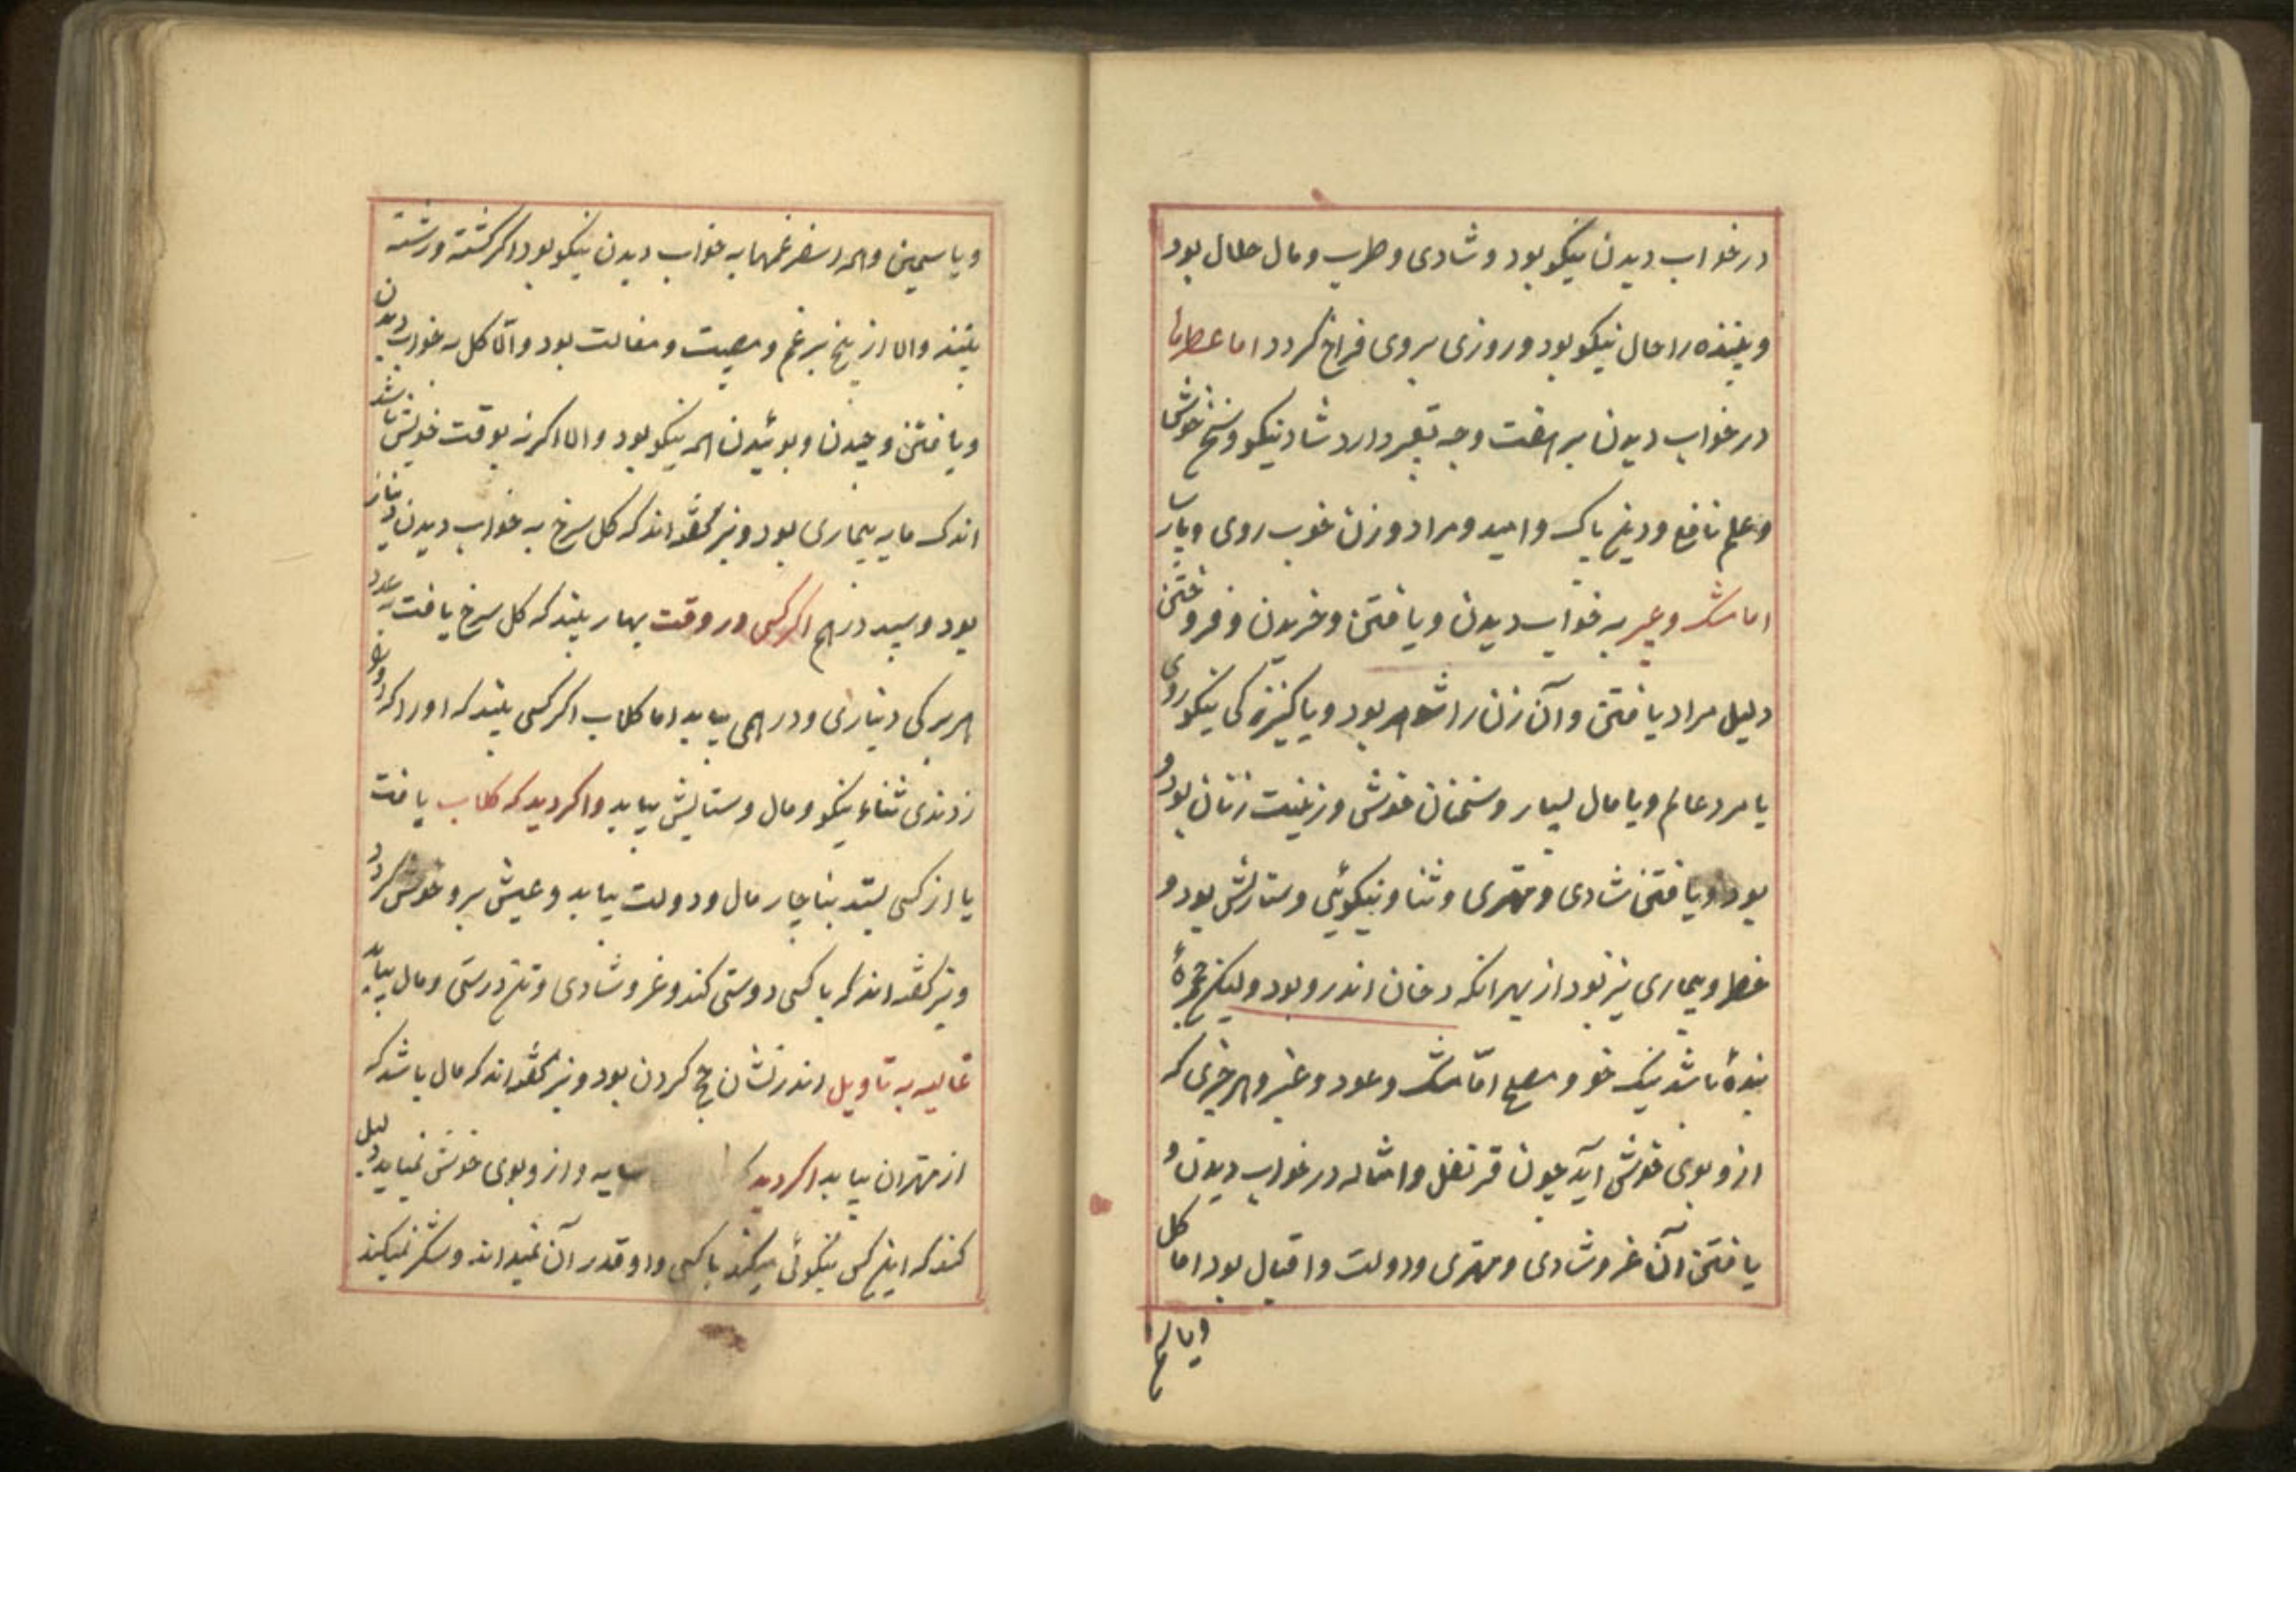 در خواب دیدن نیکو بود و شادی و طرب و مال حلال بود
و بیننده را حال نیکو بود و روزی بر وی فراخ کردد اما عطرها
در خواب دیدن بر هفت وجه تعبیر دارد ثناء نیکو و سخن خوش
و علم نافع و دین پاک و امید و مراد و زن خوب روی و پارسا
اما مشک و عنبر به خواب دیدن و یافتن و خریدن و فروختن
دلیل مراد یافتن و آن زن را شوهر بود و یا کنیزکی نیکوروی
یا مرد عالم و یا مال بسیار و سخنان خوش و زینت زنان بود و
بود و یافتن شادی و مهتری و ثنا و نیکوئی و ستایش بود و
خطر و بیماری نیز بود از بهر انکه دخان اندرو بود ولیکن مجمرهٔ
بندهٔ باشد نیک خو و مصلح امّا مشک و عود و عنبر و هر چیزی که
ازو بوی خوش آید چون قرنفل و امثاله در خواب دیدن و
یافتن آن عز و شادی و مهتری و دولت و اقبال بود اما کل
و یاسمین و همه اسفرغمها به خواب دیدن نیکو بود اکر کشته و رسته
بیند و الا از بیخ بر غم و مصیبت و بود و الّا کل به خواب دیدن
و یافتن و چیدن و بوئیدن همه نیکو بود و الا اکر نه بوقت خویش باشد
اندک مایه بیماری بود و نیز کفته‌اند که کل سرخ به خواب دیدن دینار
بود و سپید درهم اکر کسی در وقت بهار بیند که کل سرخ یافت بعدد
هر برکی دیناری و درهمی بیابد اما کلاب اکر کسی بیند که او را
زدندی ثناء نیکو و مال و ستایش بیابد و اکر دید که کلاب یافت
یا از کسی بستد بناچار مال و دولت بیابد و عیش برو خوش کردد
و نیز کفته‌اند که با کسی دوستی کند و عز و شادی و تن درستی و مال بیابد
غالیه به تاویل اندر نشان حج کردن بود و نیز کفته‌اند که مال باشد که
از مهتران بیابد اکر دید که ساید و ازو بوی خوش نمیاید دلیل
کند که این کس نیکوئی میکند با کسی و او قدر آن نمیداند و شکر نمیکند